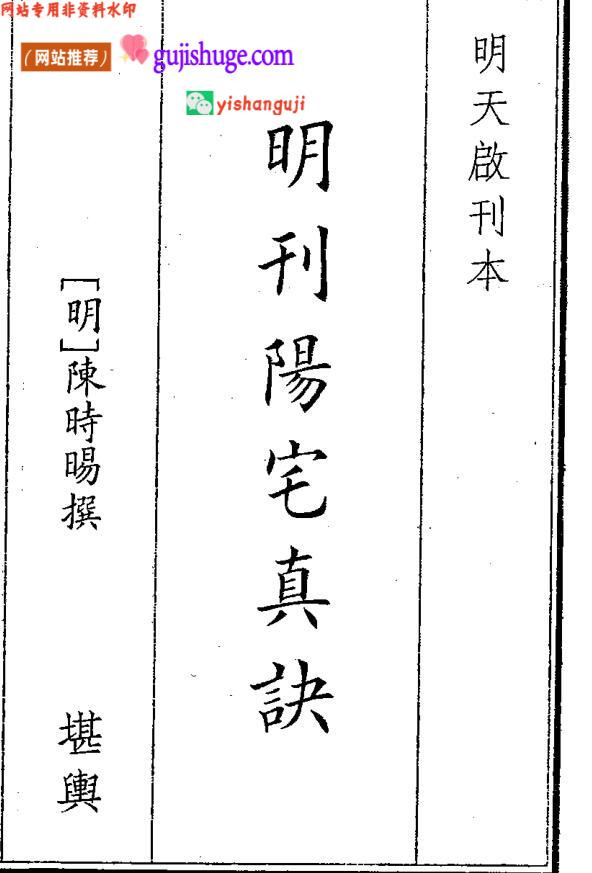 网站专用非资料水印
（网站推荐）
gujishuge.com
yishanguji
明天啟刊本
明刊陽宅真訣
［明］陳時暘撰
堪輿